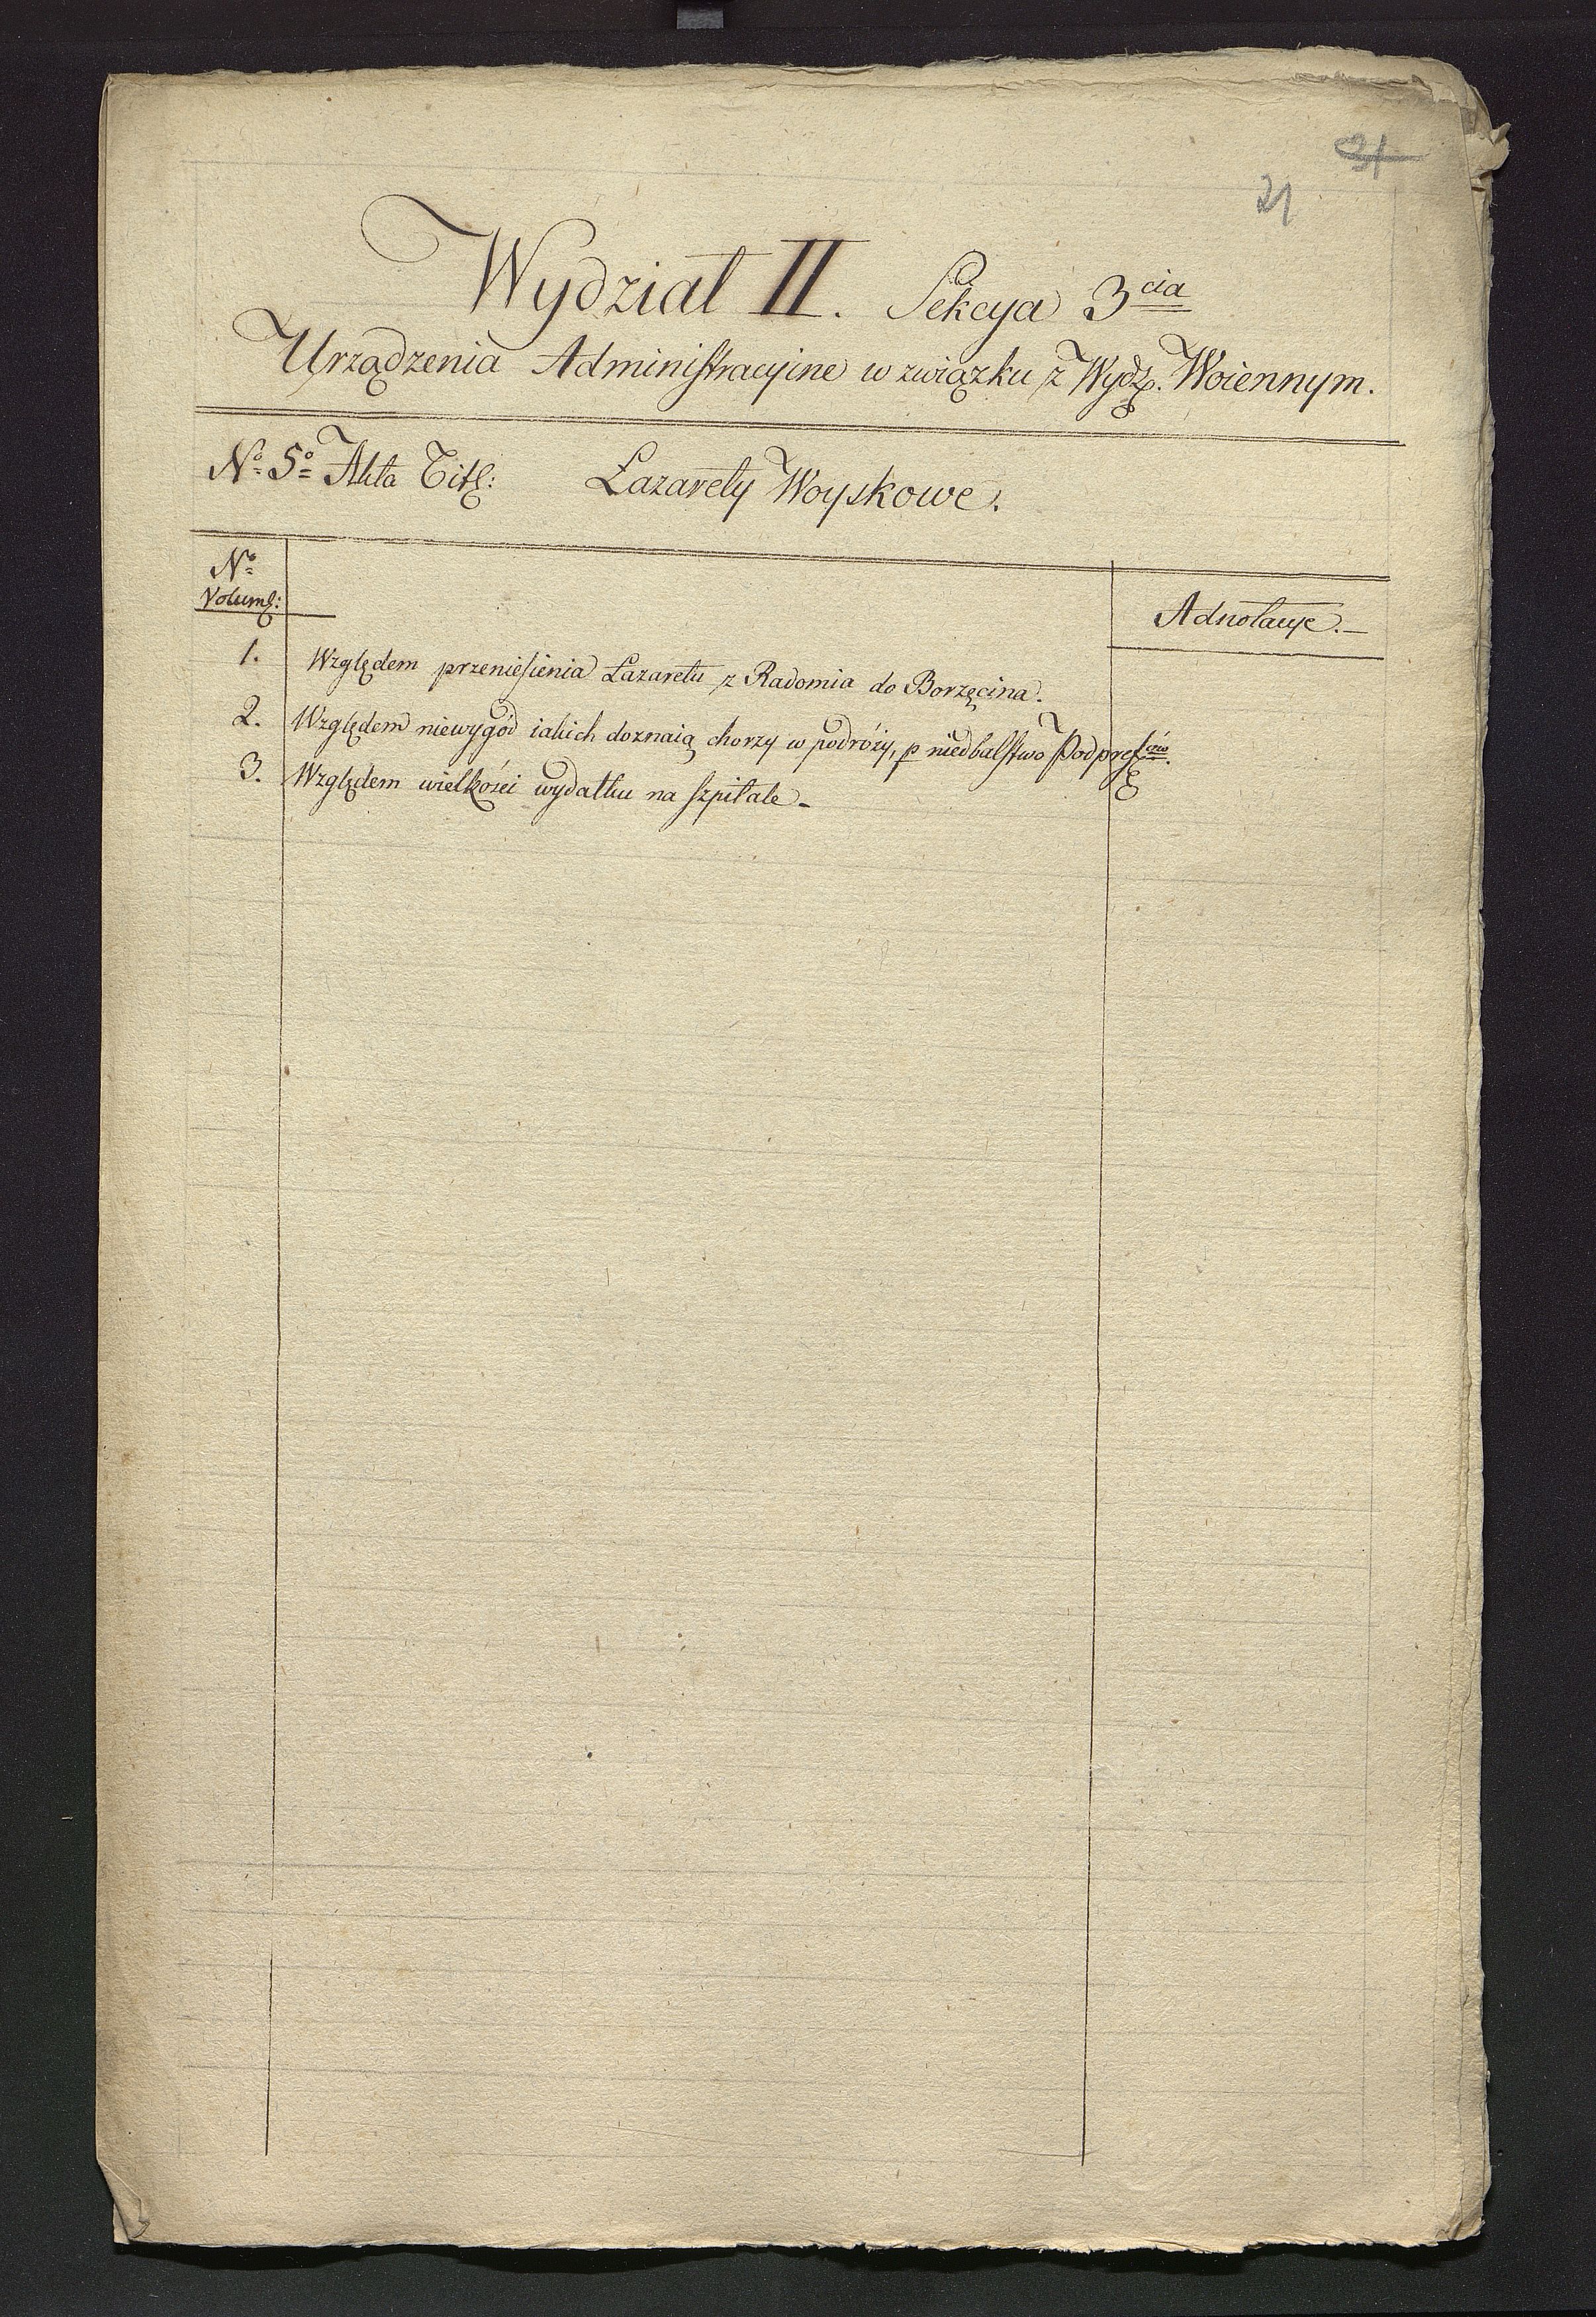 31
21
Wydział II. Sekcya 3cia
Urządzenia Administracyine w związku z Wydz. Woiennym.
No. 5o Akta Tit: Lazarety Woyskowe.
No.
Volum:
Adnotacye.—
1. Względem przeniesienia Lazaretu z Radomia do Borzęcina.
2. Względem niewygód iakich doznaią chorzy w podróży, p niedbalstwo Podprefów.
3. Względem wielkości wydatku na szpitale—